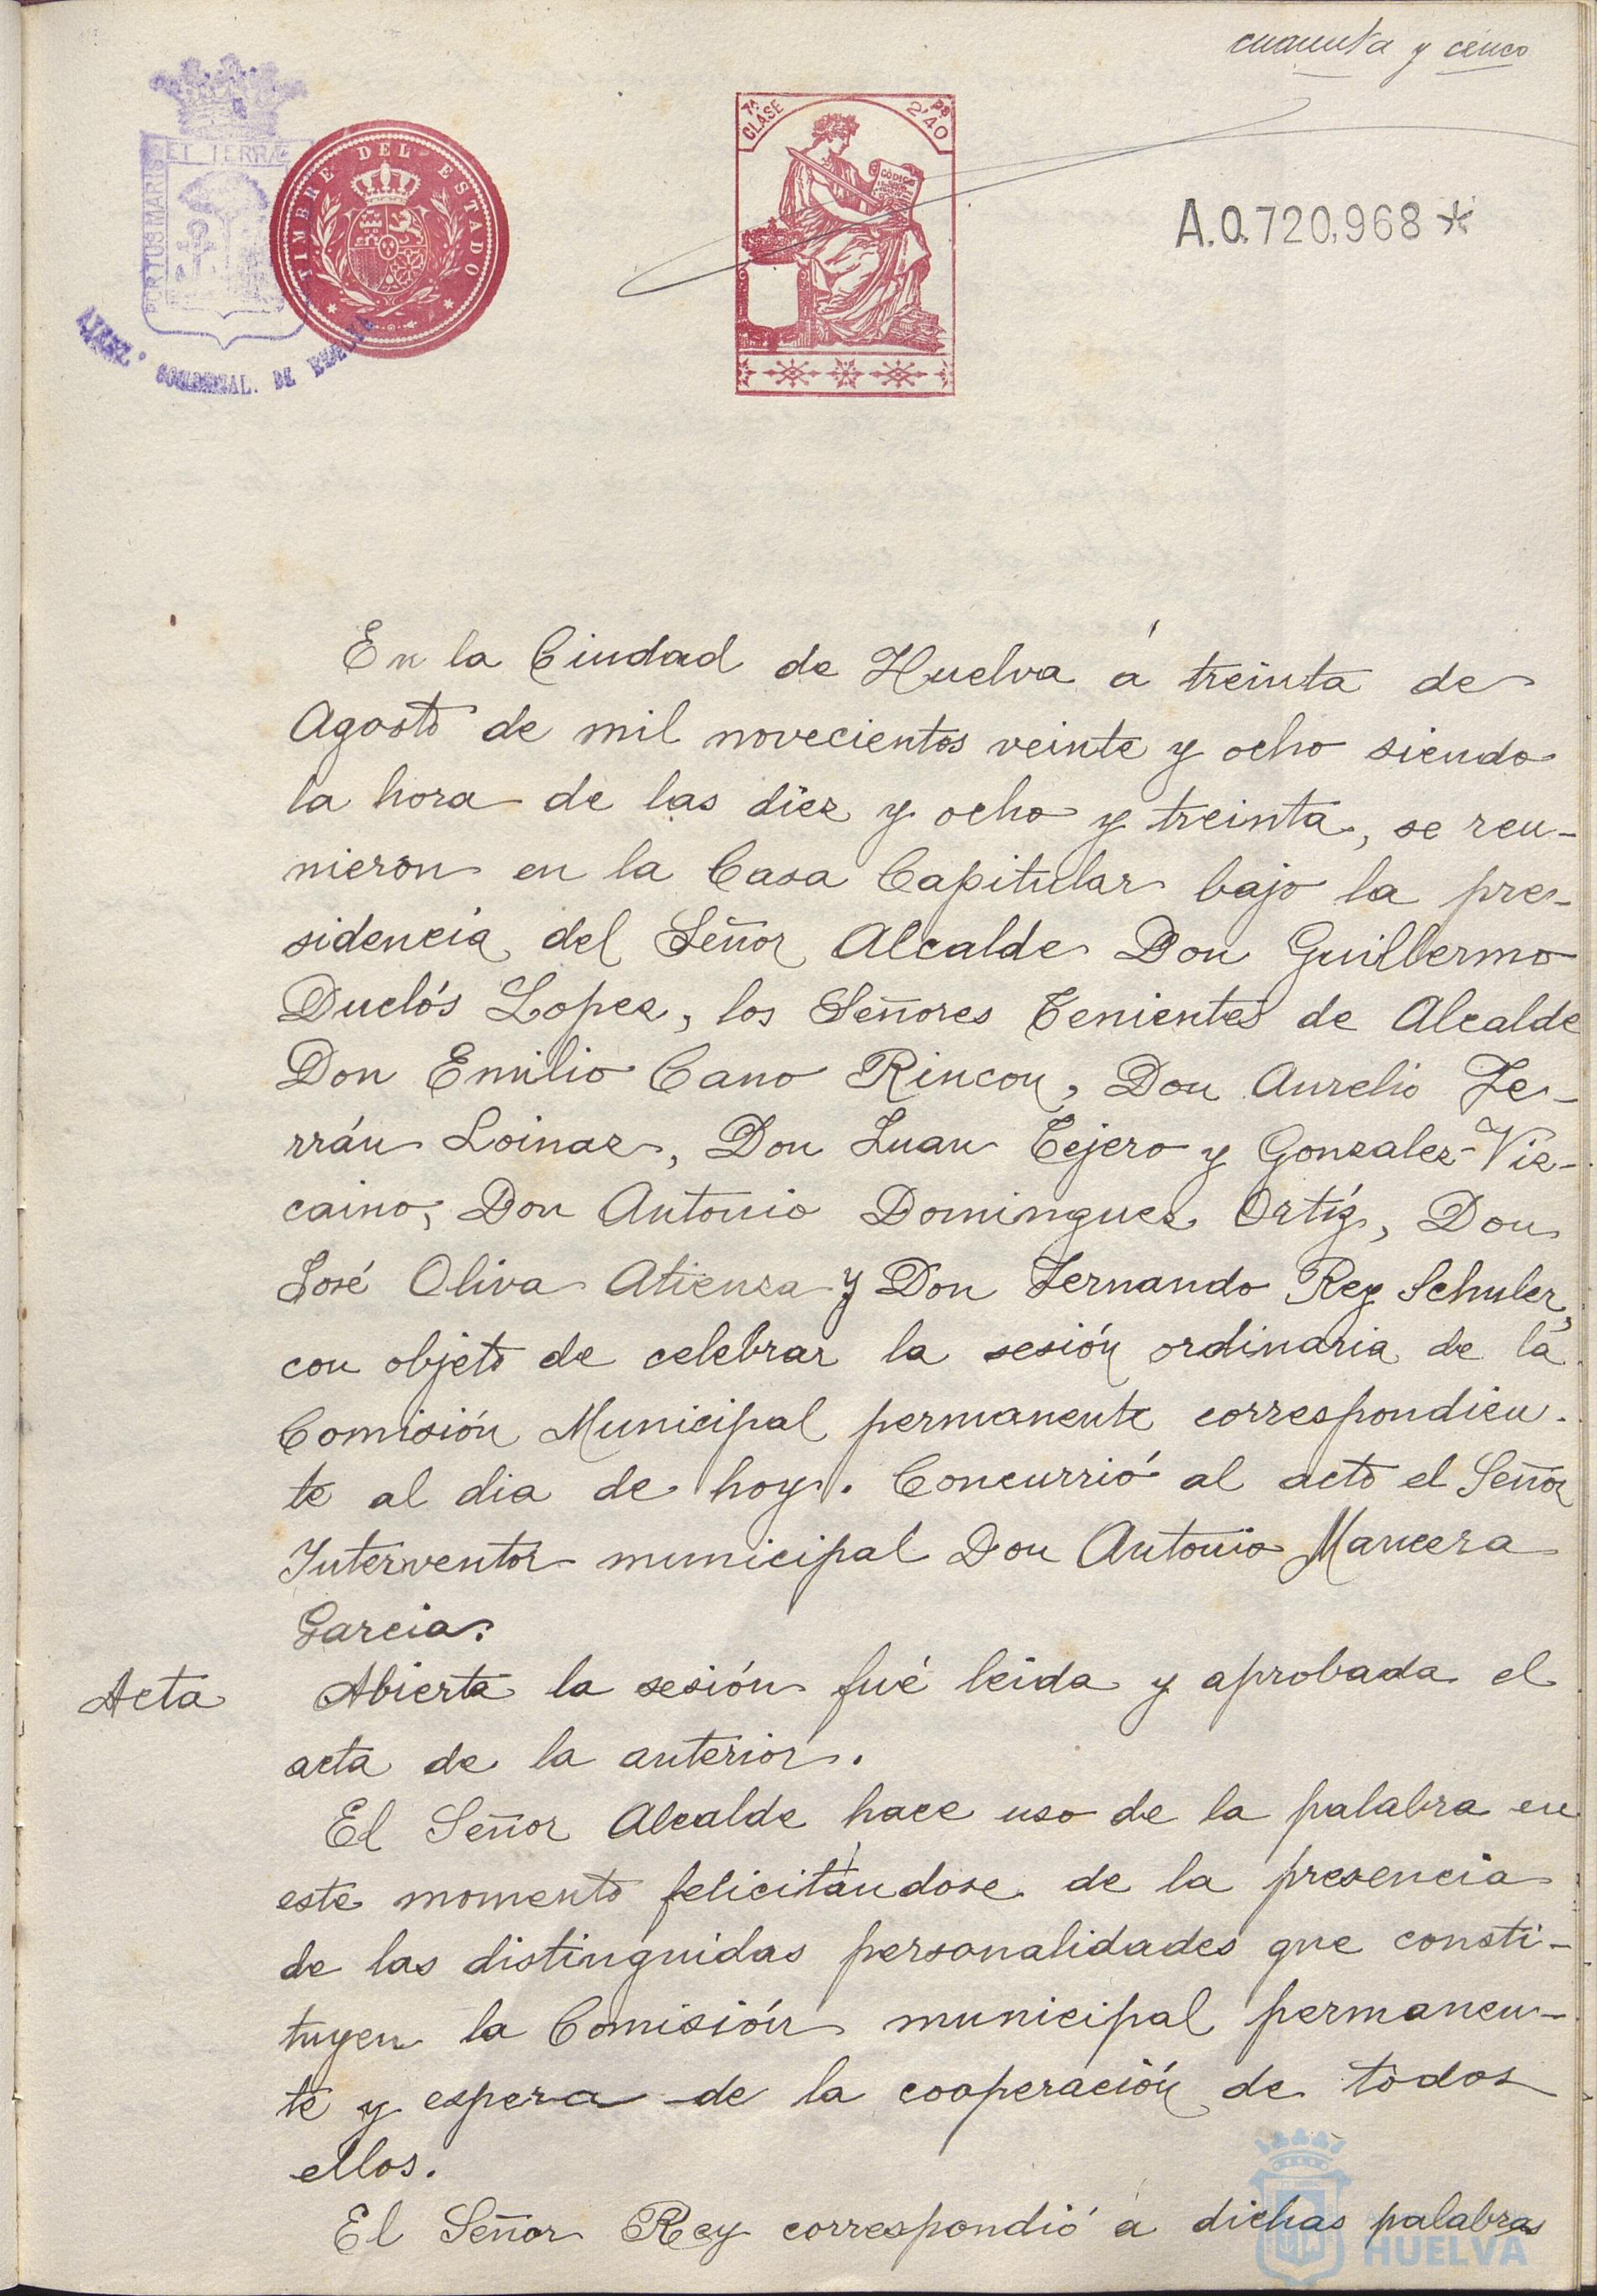 cuarenta y cinco
ET TERRÆ
PORTUS MARIS
TIMBRE DEL ESTADO
7ª CLASE
2'40 Ps
CÓDIGO
A.0.720,968 *
DE HUELVA
En la Ciudad de Huelva á treinta de
Agosto de mil novecientos veinte y ocho siendo
la hora de las diez y ocho y treinta, se reu-
nieron en la Casa Capitular bajo la pre-
sidencia del Señor Alcalde Don Guillermo
Duclós Lopez, los Señores Tenientes de Alcalde
Don Emilio Cano Rincon, Don Aurelio Fe-
rrán Loinaz, Don Juan Tejero y Gonzalez-Viz-
caino, Don Antonio Dominguez Ortíz, Don
José Oliva Atienza y Don Fernando Rey Schuler,
con objeto de celebrar la sesión ordinaria de la
Comisión Municipal permanente correspondien-
te al dia de hoy. Concurrió al acto el Señor
Interventor municipal Don Antonio Mancera
Garcia.
Acta Abierta la sesión fué leida y aprobada el
acta de la anterior.
El Señor Alcalde hace uso de la palabra en
este momento felicitándose de la presencia
de las distinguidas personalidades que consti-
tuyen la Comisión municipal permanen-
te y espera de la cooperación de todos
ellos.
El Señor Rey correspondió á dichas palabras
HUELVA